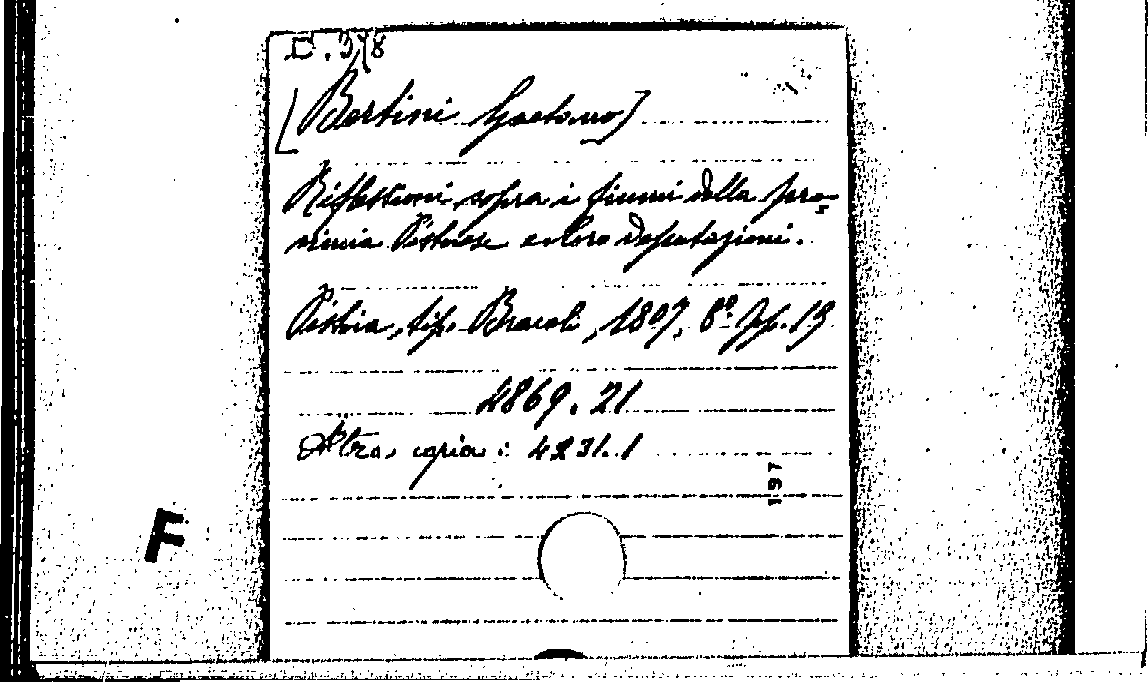 [Bertini Gaetano]
Riflessioni sopra i fiumi della pro-
vincia Pistoiese e loro deputazioni.
Pistoia, tip. Bracali, 1807. 8º pp. 19
4869.21
Altra copia: 4231.1
197
F